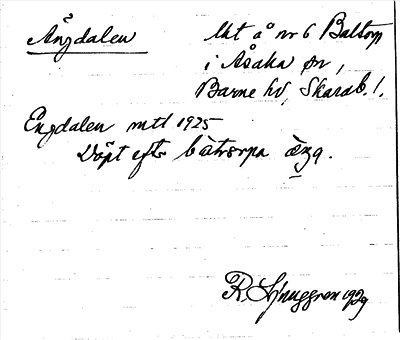 Ängdalen
Lht å nr 6 Baltorp
i Åsaka sn,
Barne hd, Skarab. l.
Engdalen mtl 1925
Döpt efter bàtrərpa æŋa.
R. Ljunggren 1929